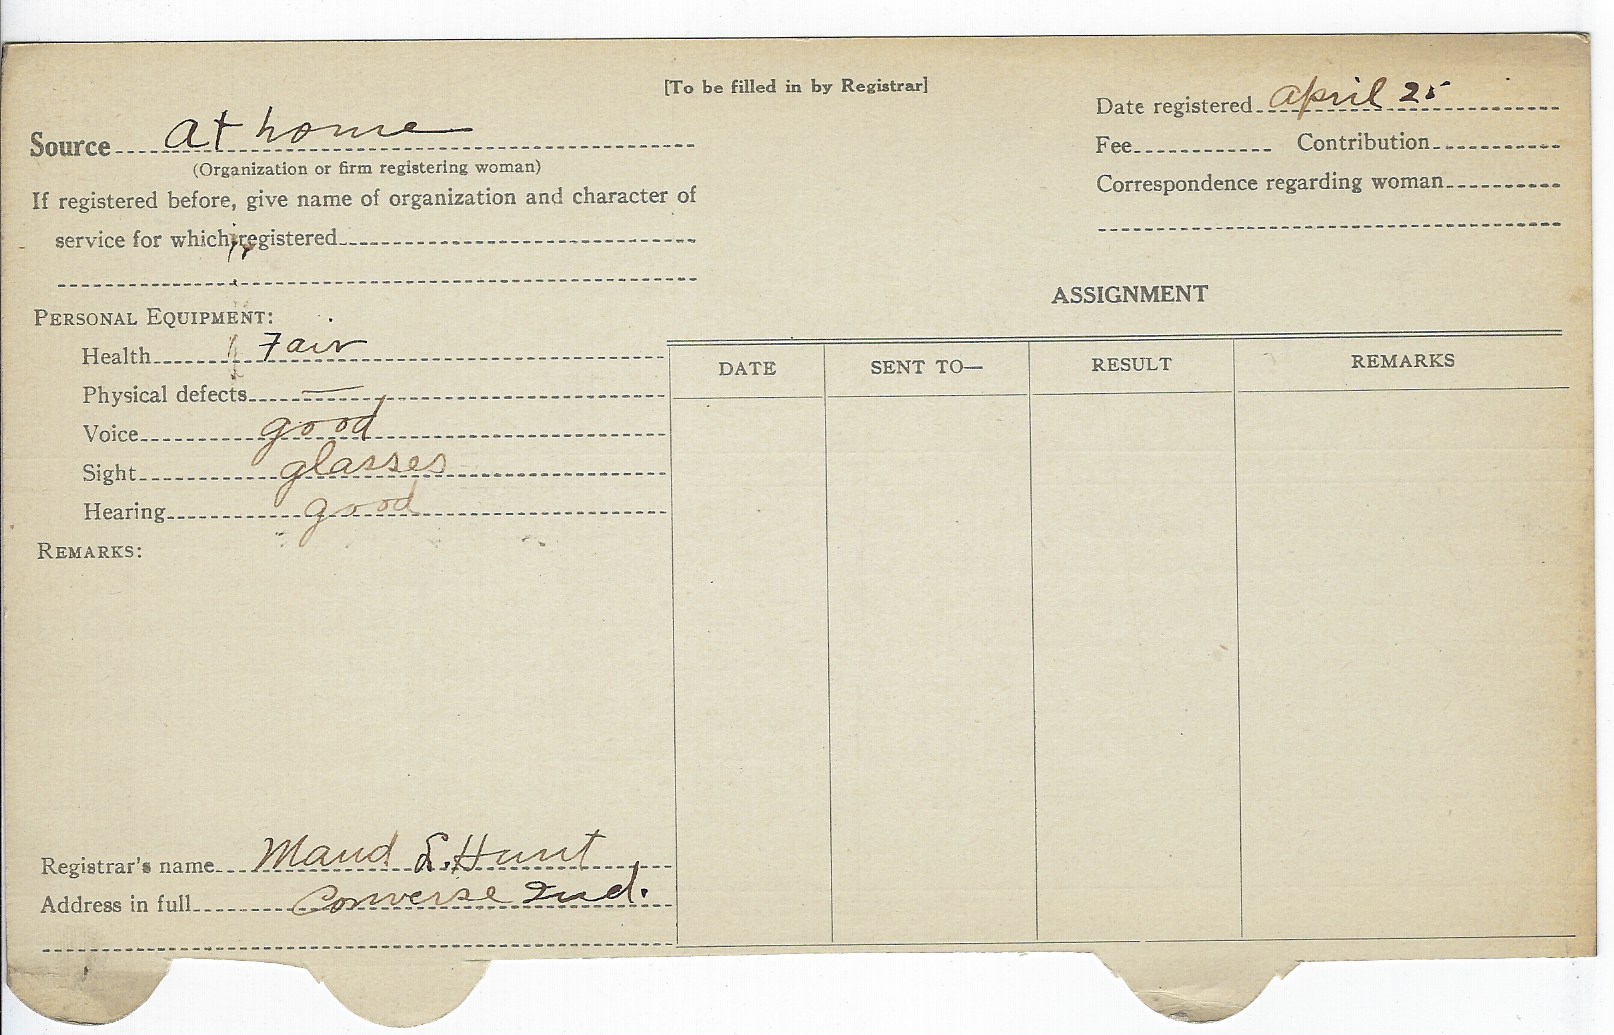 [To be filled in by Registrar]
Source at home
(Organization or firm registering woman)
If registered before, give name of organization and character of
service for which registered
Date registered April 25
Fee Contribution
Correspondence regarding woman
PERSONAL EQUIPMENT:
Health Fair
Physical defects —
Voice good
Sight glasses
Hearing good
REMARKS:
Registrar's name Maud E. Hunt
Address in full Converse Ind.
ASSIGNMENT
DATE SENT TO— RESULT REMARKS